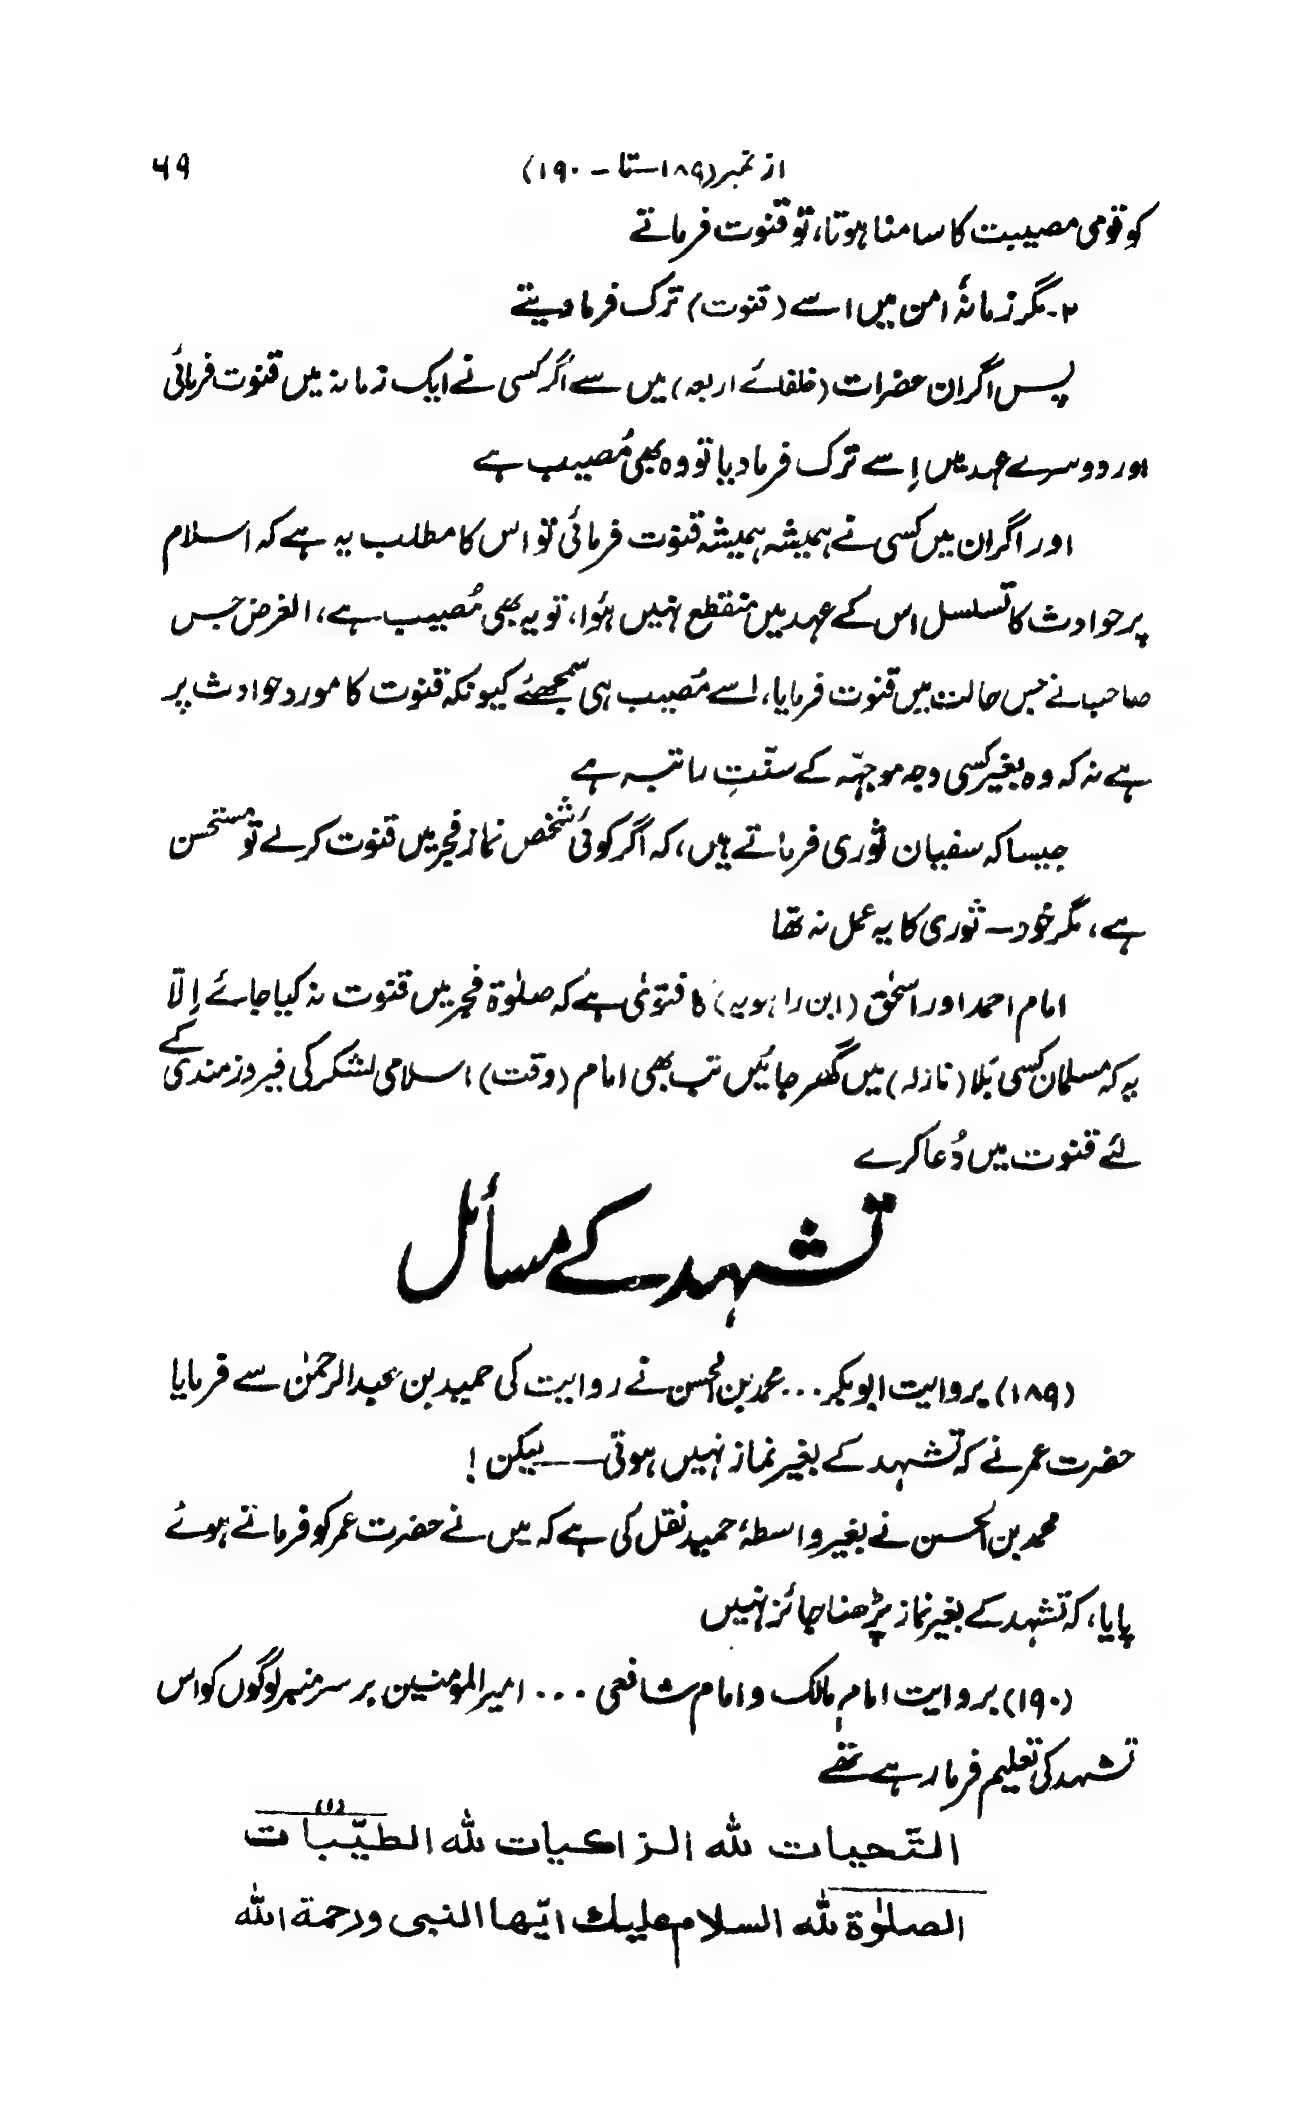 از نمبر (۱۸۹ ستا – ۱۹۰) ۶۹
کو قومی مصیبت کا سامنا ہوتا، تو قنوت فرماتے
۲- مگر زمانۂ امن میں اسے (قنوت) ترک فرما دیتے
پس اگر ان حضرات (خلفائے اربعہ) میں سے اگر کسی نے ایک زمانہ میں قنوت فرمائی
اور دوسرے عہد میں اِسے ترک فرما دیا تو وہ بھی مُصیب ہے
اور اگر ان میں کسی نے ہمیشہ ہمیشہ قنوت فرمائی تو اس کا مطلب یہ ہے کہ اسلام
پر حوادث کا تسلسل اس کے عہد میں منقطع نہیں ہُوا، تو یہ بھی مُصیب ہے، الغرض جس
صاحب نے جس حالت میں قنوت فرمایا، اسے مُصیب ہی سمجھئے کیونکہ قنوت کا مورد حوادث پر
ہے نہ کہ وہ بغیر کسی وجہ موجہّہ کے سنّتِ راتبہ ہے
جیسا کہ سفیان ثوری فرماتے ہیں، کہ اگر کوئی شخص نماز فجر میں قنوت کر لے تو مستحسن
ہے، مگر خود – ثوری کا یہ عمل نہ تھا
امام احمد اور اسحٰق (ابن راہویہ) کا فتویٰ ہے کہ صلوٰۃ فجر میں قنوت نہ کیا جائے اِلّا
یہ کہ مسلمان کسی بَلا (نازلہ) میں گھر جائیں تب بھی امام (وقت) اسلامی لشکر کی فیروزمندی کے
لئے قنوت میں دُعا کرے
تشہد کے مسائل
(۱۸۹) بروایت ابوبکر ... محمد بن الحسن نے روایت کی حمید بن عبدالرحمٰن سے فرمایا
حضرت عمر نے کہ تشہد کے بغیر نماز نہیں ہوتی —— لیکن !
محمد بن الحسن نے بغیر واسطۂ حمید نقل کی ہے کہ میں نے حضرت عمر کو فرماتے ہوئے
پایا، کہ تشہد کے بغیر نماز پڑھنا جائز نہیں
(۱۹۰) بروایت امام مالک و امام شافعی ... امیر المومنین بر سر منبر لوگوں کو اس
تشہد کی تعلیم فرما رہے تھے
التّحیات للہ الزاکیات للہ الطیّبات (۱)
الصلوٰۃ للہ السلام علیك ایّھا النبی ورحمۃ اللہ